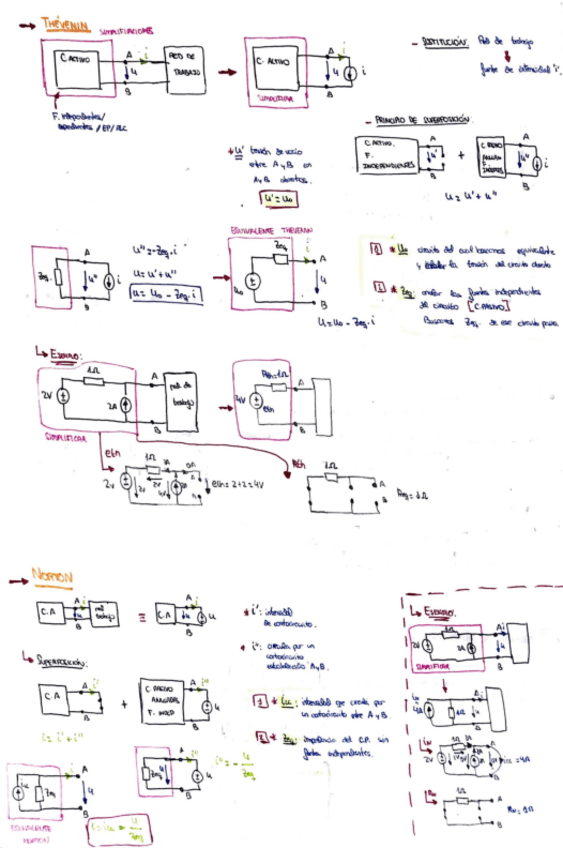 → THÉVENIN SIMPLIFICACIONES
C. ACTIVO
A
i
u
B
RED DE TRABAJO
F. Independientes/
dependientes / EP/ALC
C. ACTIVO
SIMPLIFICAR
A
i
u
B
i
- SUSTITUCIÓN: Red de trabajo
fuente de intensidad "i".
- PRINCIPIO DE SUPERPOSICIÓN:
C. ACTIVO
F.
INDEPENDIENTES
A
u'
B
+
A
u"
B
i
u = u' + u"
* u' tensión de vacío
entre A y B en
A y B abiertos.
u' = u₀
Zeq.
A
u"
B
i
u" = -Zeq. i
u = u' + u"
u = u₀ - Zeq. i
EQUIVALENTE THEVENIN
Zeq
u₀
A
i
u
B
u = u₀ - Zeq. i
1 * u₀ circuito del cual buscamos equivalente
y la tensión del circuito abierto
2 * Zeq: anular las fuentes independientes
de circuito [C. PASIVO]
Buscamos Zeq. de ese circuito
↳ EJEMPLO:
2V
1Ω
2A
A
B
red de
trabajo
SIMPLIFICAR
Rth=1Ω
4V
eth
A
B
eth
2V
1Ω
2V
4V
eth = 2+2 = 4V
Rth
1Ω
A
B
Req = 1Ω
→ NORTON
C.A
A
i
u
B
red
trabajo
≡
C.A
A
i
B
u
* i': intensidad
de cortocircuito.
* i": circula por un
cortocircuito
A y B.
↳ SUPERPOSICIÓN:
C.A
A
i'
B
+
C. PASIVO
ANULADAS
F. INDEP
A
i"
B
u
i = i' + i"
1 * icc: intensidad que circula por
un cortocircuito entre A y B.
2 * Zeq: impedancia del C.P. sin
fuentes independientes.
icc
Zeq
A
i
u
B
EQUIVALENTE
NORTON
Zeq
A
i"
B
u
i" = - u/Zeq
i = icc - u/Zeq
↳ EJEMPLO:
2V
1Ω
2A
A
i
u
B
SIMPLIFICAR
iN
4A
1Ω
A
B
iN
2V
1Ω
icc = 4A
RN
1Ω
RN = 1Ω